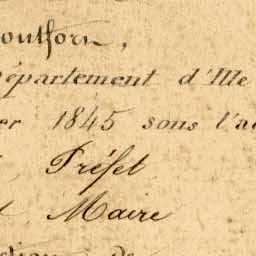 ontforn,
épartement d'Ille
er 1845 sous l'a
Préfet
Maire
ction de